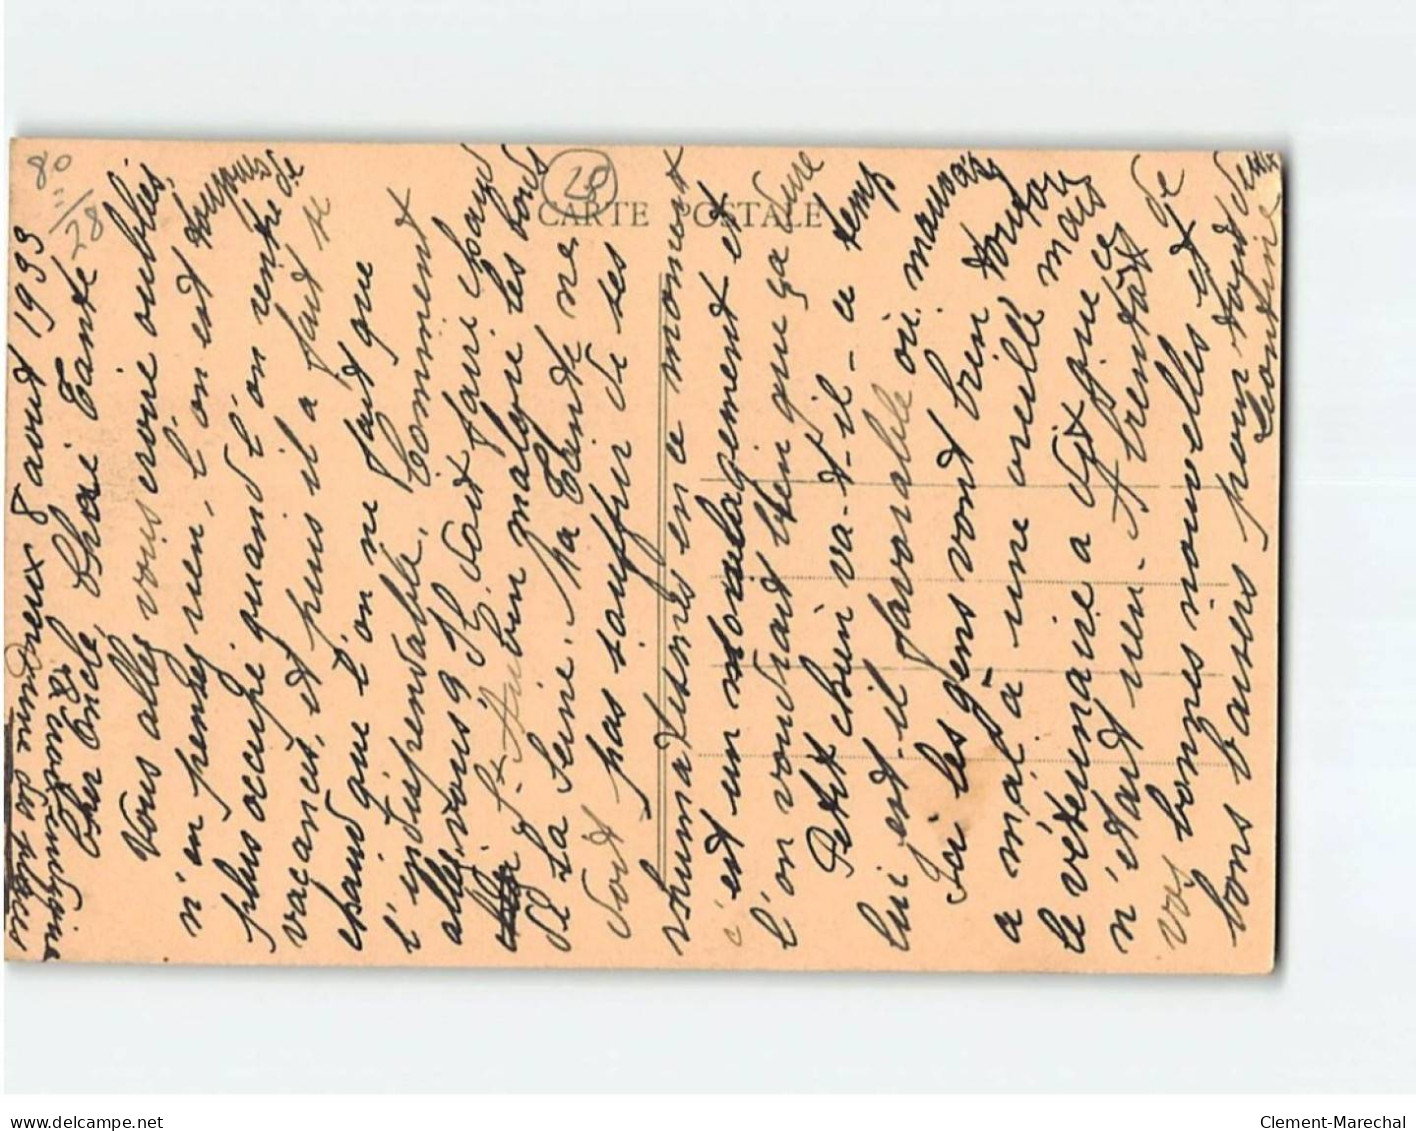 80
28
20
CARTE POSTALE
8 août 1933
Cher Oncle, Chère Tante
Vous allez vous croire oubliés,
n'en pensez rien, l'on est toujours
plus occupé quand l'on rentre de
vacances, et puis il a fait si
chaud que l'on ne fait que
l'indispensable. Comment
allez-vous? Il doit faire chaud
aussi bien malgré les bords
de la Seine. Ma Tante ne
doit pas souffrir de ses
rhumatismes en ce moment
c'est un soulagement et
l'on voudrait bien que ça dure
Petit chien va-t-il - ce temp
lui est-il favorable ou mauvais
Ici les gens vont bien Touton
a mal à une oreille mais
le vétérinaire a dit que ce
n'était rien. A bientôt de
vos bonnes nouvelles et
bons baisers pour tous deux
Léontine
Clement-Marechal